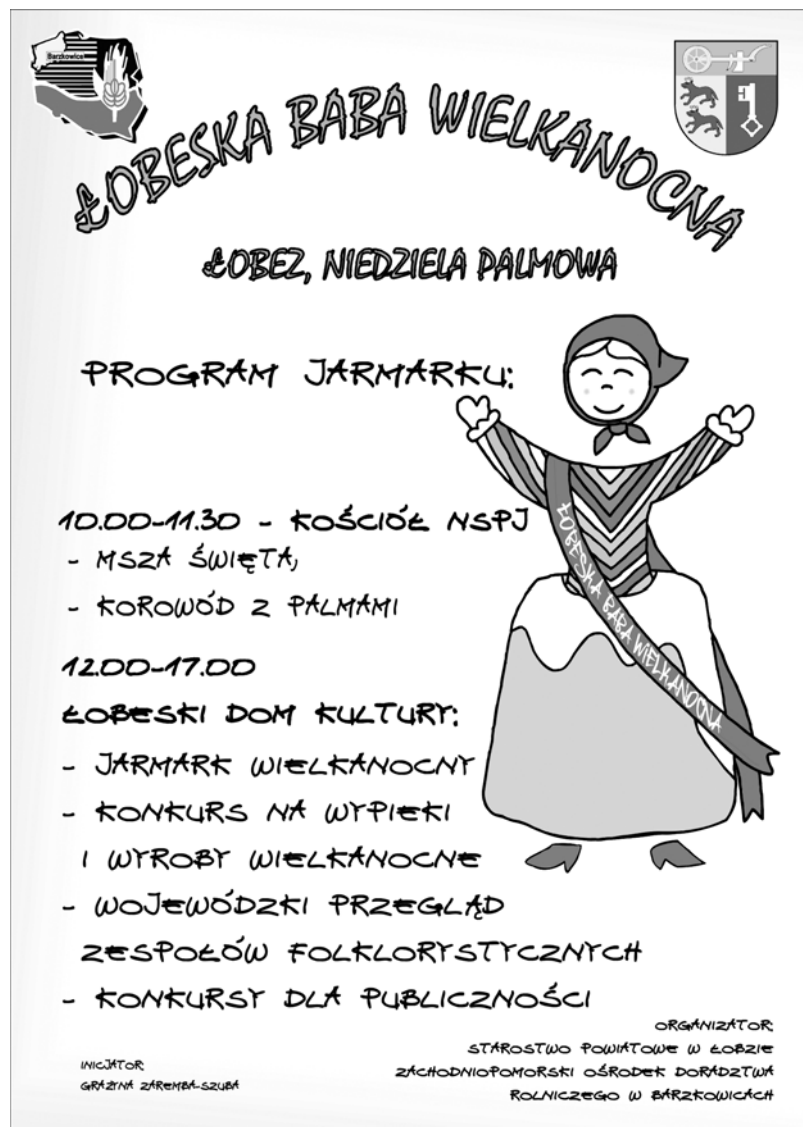 Barzkowice
ŁOBESKA BABA WIELKANOCNA
ŁOBEZ, NIEDZIELA PALMOWA
PROGRAM JARMARKU:
10.00-11.30 - KOŚCIÓŁ NSPJ
- MSZA ŚWIĘTA,
- KOROWÓD Z PALMAMI
12.00-17.00
ŁOBESKI DOM KULTURY:
- JARMARK WIELKANOCNY
- KONKURS NA WYPIEKI
I WYROBY WIELKANOCNE
- WOJEWÓDZKI PRZEGLĄD
ZESPOŁÓW FOLKLORYSTYCZNYCH
- KONKURSY DLA PUBLICZNOŚCI
ŁOBESKA BABA WIELKANOCNA
INICJATOR:
GRAŻYNA ZAREMBA-SZUBA
ORGANIZATOR:
STAROSTWO POWIATOWE W ŁOBZIE
ZACHODNIOPOMORSKI OŚRODEK DORADZTWA
ROLNICZEGO W BARZKOWICACH